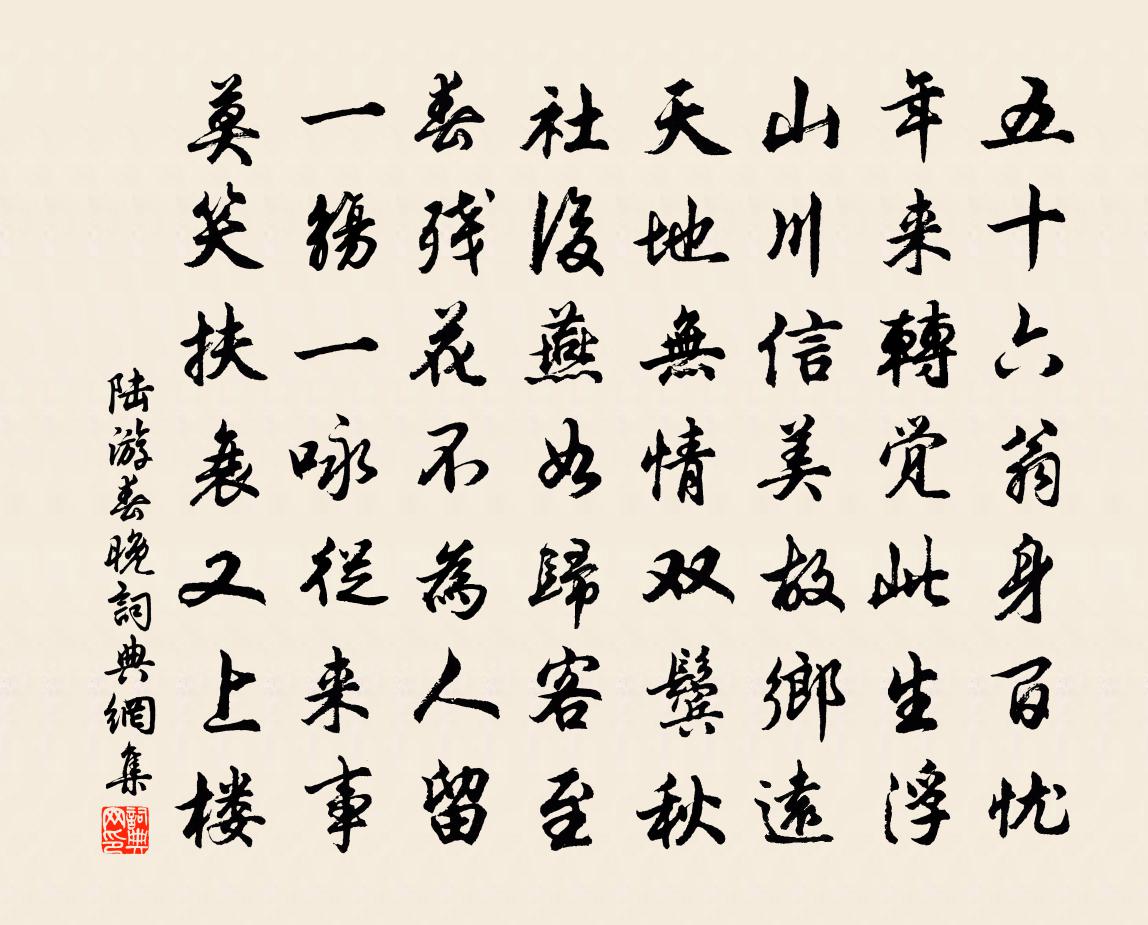 五十六翁身百忧
年来轉觉此生浮
山川信美故鄉遠
天地無情双鬓秋
社後燕如歸客至
春残花不為人留
一觞一咏從来事
莫笑扶衰又上楼
陆游春晚詞典網集
詞典网印